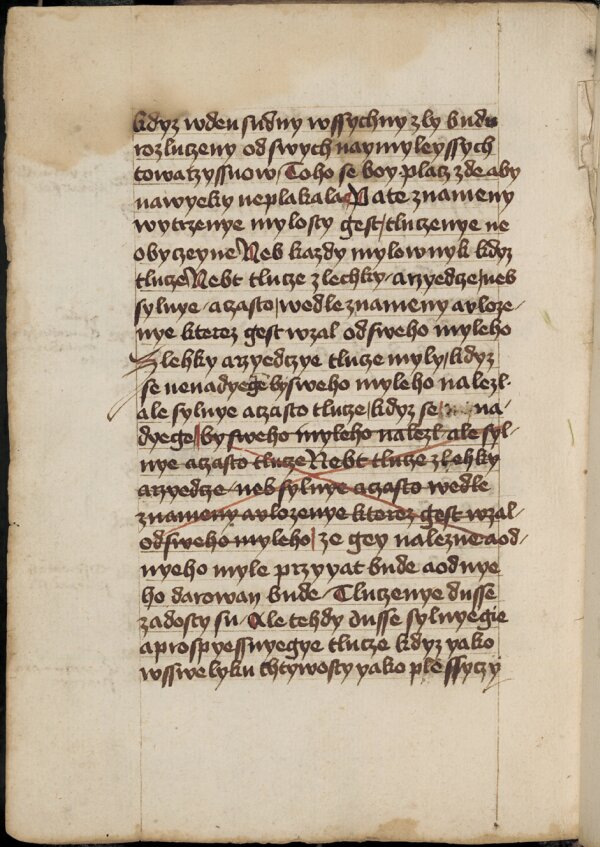 kdyz wden sudny wssychny zly budu
rozluczeny od swych naymyleyssych
towarzyssuow / Toho se boy placz zde aby
nawyeky neplakala Pate znameny
wytrzenye mylosty gest / tluczenye ne
obyczeyne Neb kazdy mylownyk kdyz
tlucze Nebt tlucze z lechky / arzyedcze / neb
sylnye / aczasto / wedle znameny avloze-
nye kterez gest wzal od sweho myleho
Zlehky arzyedczye tlucze myly / kdyz
se nenadyege by sweho myleho nalezl-
ale sylnye aczasto tlucze / kdyz se na-
dyege / by sweho myleho nalezl ale syl-
nye aczasto tlucze Nebt tlucze z lehky
arzyedcze neb sylnye aczasto wedle
znameny avlozenye kterez gest wzal-
od sweho myleho / ze gey nalezne aod-
nyeho myle przyyat bude aodnye
ho darowan bude / Tluczenye dusse
zadosty su / Ale tehdy dusse sylnyegie
aprospyessnyegye tlucze kdyz yako
wsswelyku chtywosty yako plessyczy